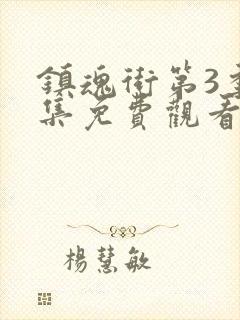 鎮魂街第3季
集免費觀看
楊慧敏